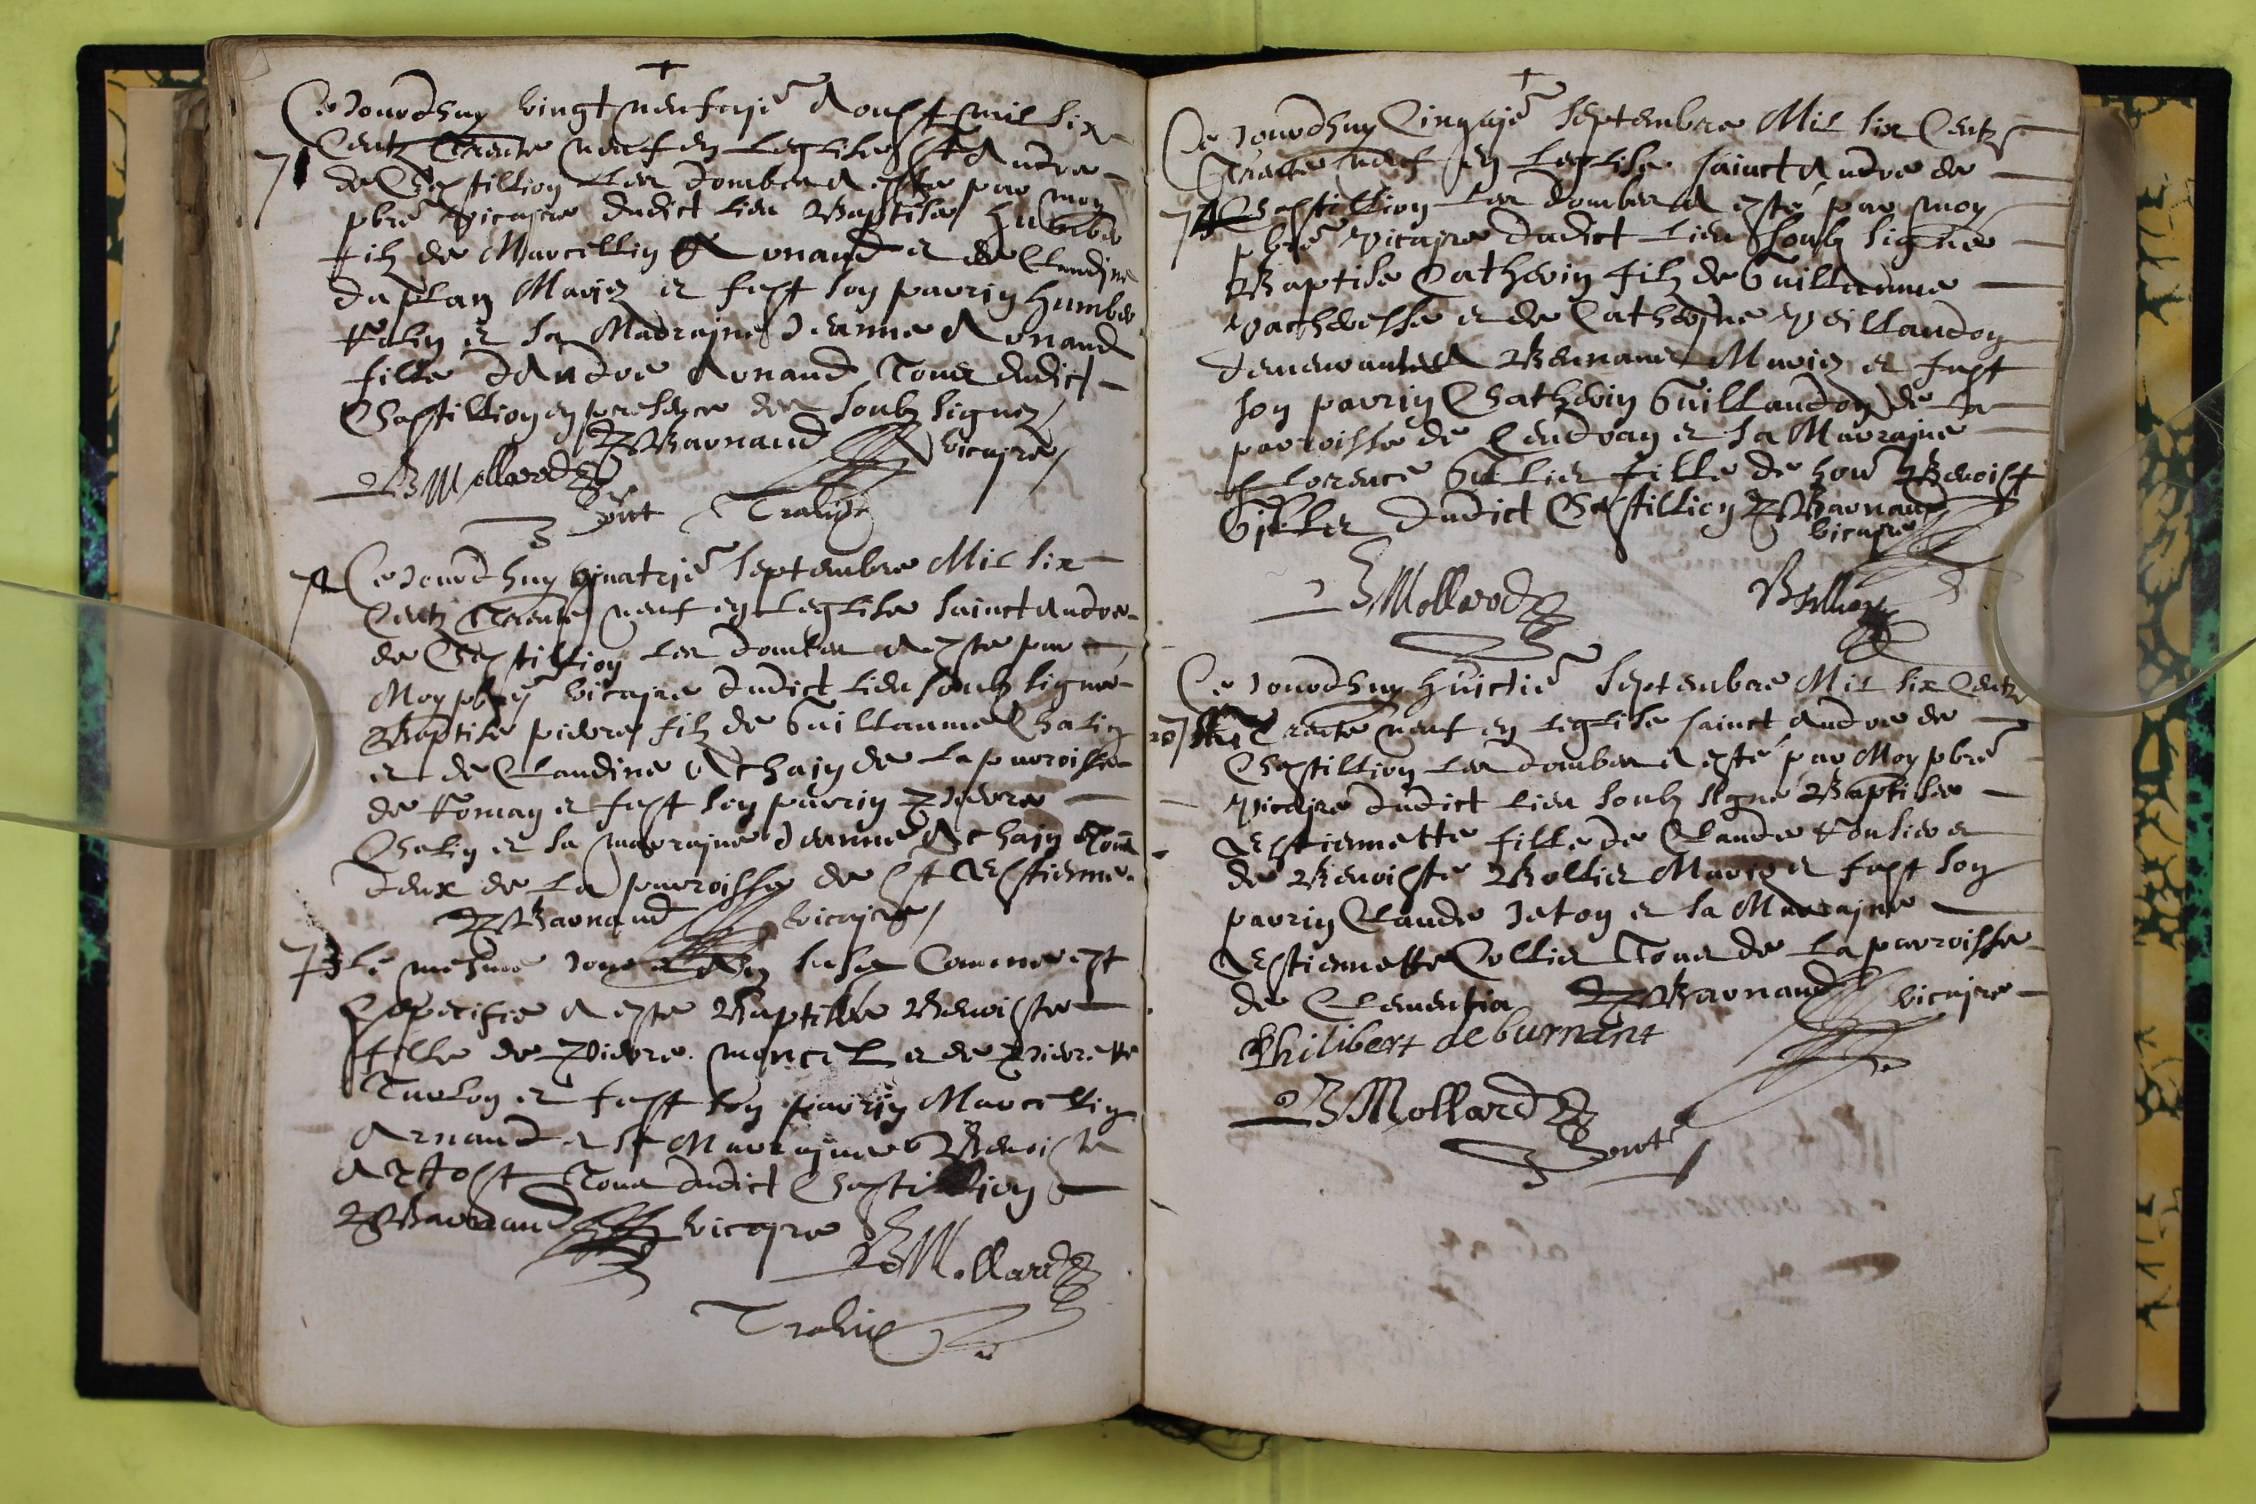 Ce Jourdhuy vingt neufvjé Aoust mil six
Centz Trente neuf en Leglise St Andre
71
de Chastillion Les dombes A este par moy
pbre vicajre dudict Lieu Baptise Humber
filz de Marcellin Arnaud et de Claudjne
duplan Mariez et fust son parrin Humber
et sa Madrajne Jeanne Arnaud
fille dAndre Arnaud Tous dudict
Chastillion en presence des soubz signez
Barnaud vicajre
B Mollard
Trabut
72 Ce Jourdhuy quatrjé Septembre Mil six
Centz Trente neuf en Leglise sainct Andre
de Chastillion Les dombes A este par
Moy pbre vicajre dudict Lieu soubz signe
Baptise pierre filz de Guillaume Chatin
et de Claudine Achajn de La parroisse
de Roman et fust son parrin pierre
Chatin et sa marrajne Jeanne Achajn Tous
deux de La parroisse de St Estienne
Barnaud vicajre
73 Le mesme Jour susd Comme est
specifie A este Baptisée Benoiste
fille de Pierre moncel et de pierrette
et fust son parrin Marcellin
Arnaud et sa Marrajne Benoiste
Tous dudict Chastillion
Barnaud vicajre
B Mollard
Trabut
Ce Jourdhuy Cinqajé Septembre Mil six Centz
Trente neuf en Leglise sainct Andre de
74 Chastillion Les dombes A esté par moy
pbre vicajre dudict Lieu soubz signe
Baptise Catherin filz de Guillaume
Vacheresse et de Catherjne
demeurantz A Mariez et fust
son parrin Chatherin Guillaudon de La
parroisse de Condran et sa Marrajne
Florence fille de hon Benoist
dudict Chastillion Barnaud
vicajre
B Mollard
Ce Jourdhuy Huictié Septembre Mil six Centz
Trente neuf en Leglise sainct Andre de
Chastillion Les dombes A esté par Moy pbre
vicajre dudict Lieu soubz signe Baptisee
Estiennette fille de Claude et
de Benoiste Bollier Mariez et fust son
parrin Claude Jeton et sa Marrajne
Estiennette Collier Tous de La parroisse
de Clementia Barnaud vicajre
Philibert deburnant
B Mollard